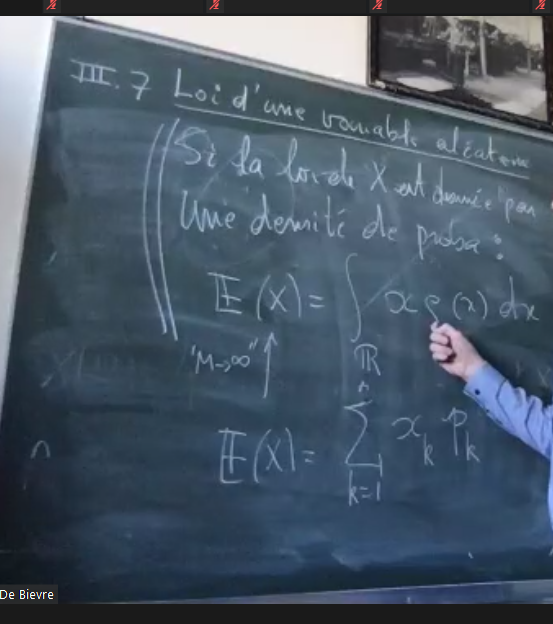 III.7 Loi d'une variable aléatoire
Si la loi de X est donnée par
une densité de proba :
E(X) = ∫_ℝ x ρ(x) dx
"n→∞" ↑
E(X) = ∑_{k=1}^{n} x_k p_k
De Bievre